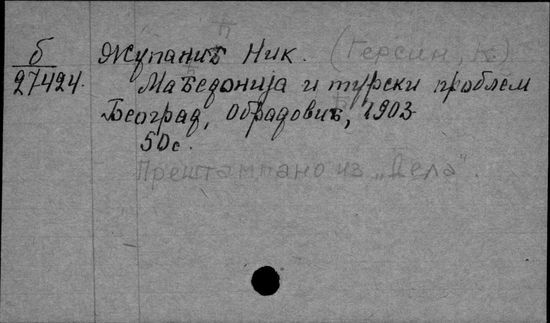 б
27424.
Жупанић Ник. (Герсин, К)
Маћедонија и турски проблем
Београд, Обрадовић, 1903
50с.
Прештампано из „Дела“.